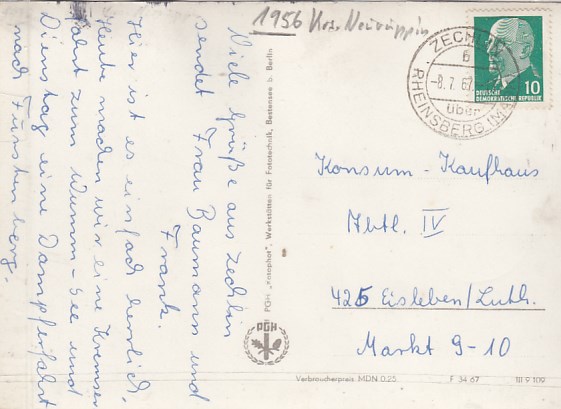 1956 Krs. Neuruppin
Viele Grüße aus Zechlin
sendet Frau Baumann und
Frank.
Hier ist es einfach herrlich.
Heute machen wir eine Kremser
fahrt zum Wumm-See und
Dienstag eine Dampferfahrt
nach Fürstenberg.
PGH „Fotophot", Werkstätten für Fototechnik, Bestensee b. Berlin
PGH
ZECHLIN
6
-8.7.67
über
RHEINSBERG (MARK)
10
DEUTSCHE
DEMOKRATISCHE REPUBLIK
Konsum-Kaufhaus
Abtl. IV
425 Eisleben/Luth.
Markt 9-10
Verbraucherpreis MDN 0,25
F 34 67
III 9 109